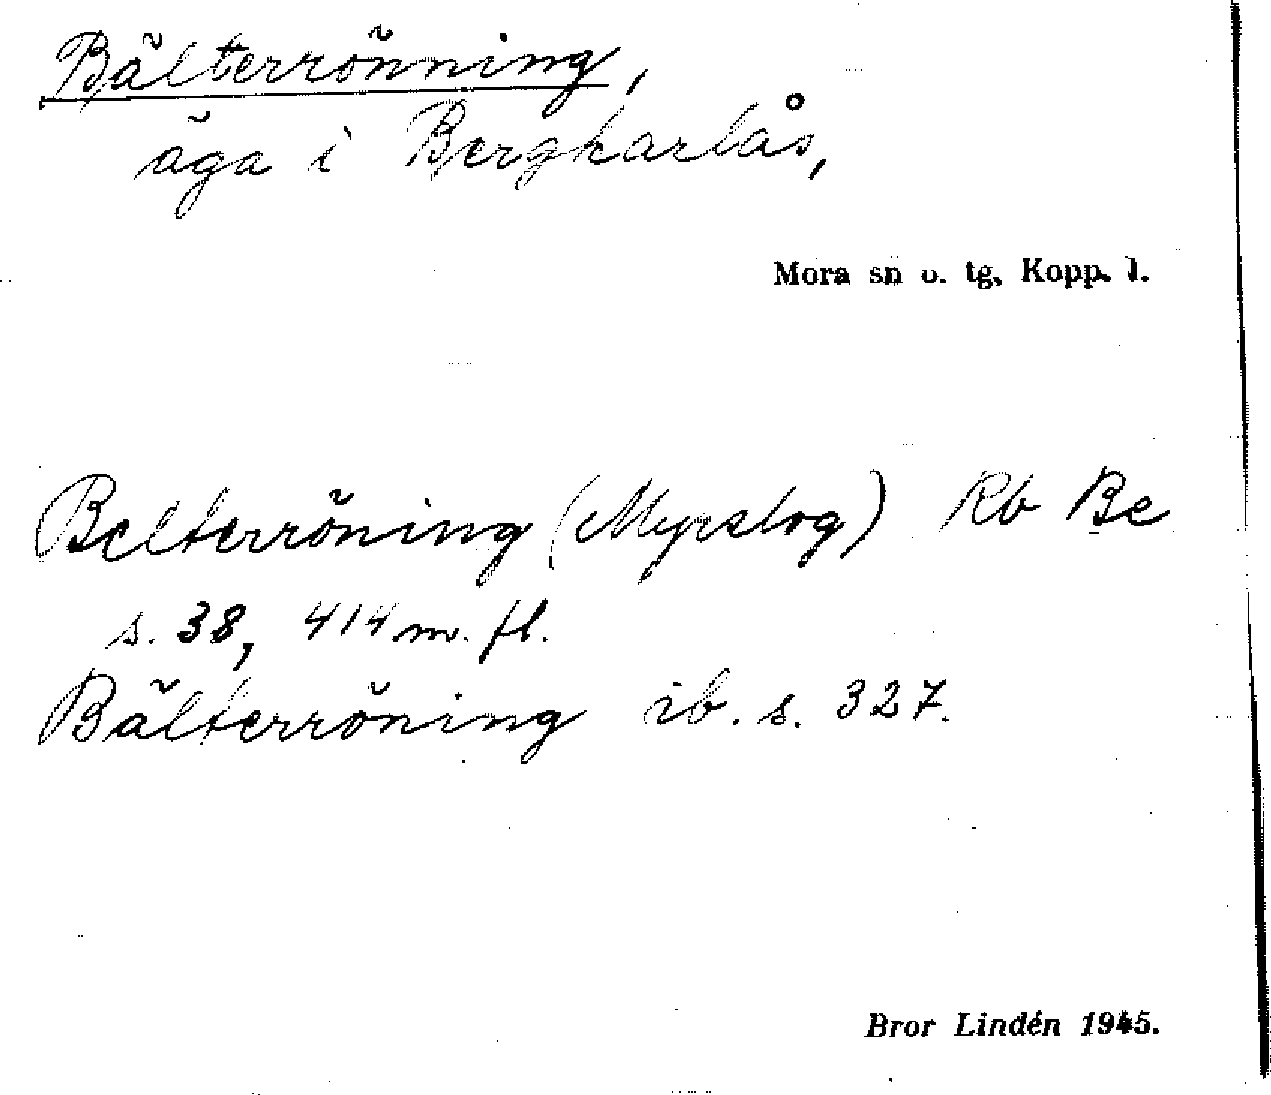 Bälterrönning,
äga i Bergkarlås,
Mora sn o. tg, Kopp. l.
Belterröning (Myrslog) Rb Be
s. 38, 414 m. fl.
Bälterröning ib. s. 327.
Bror Lindén 1945.